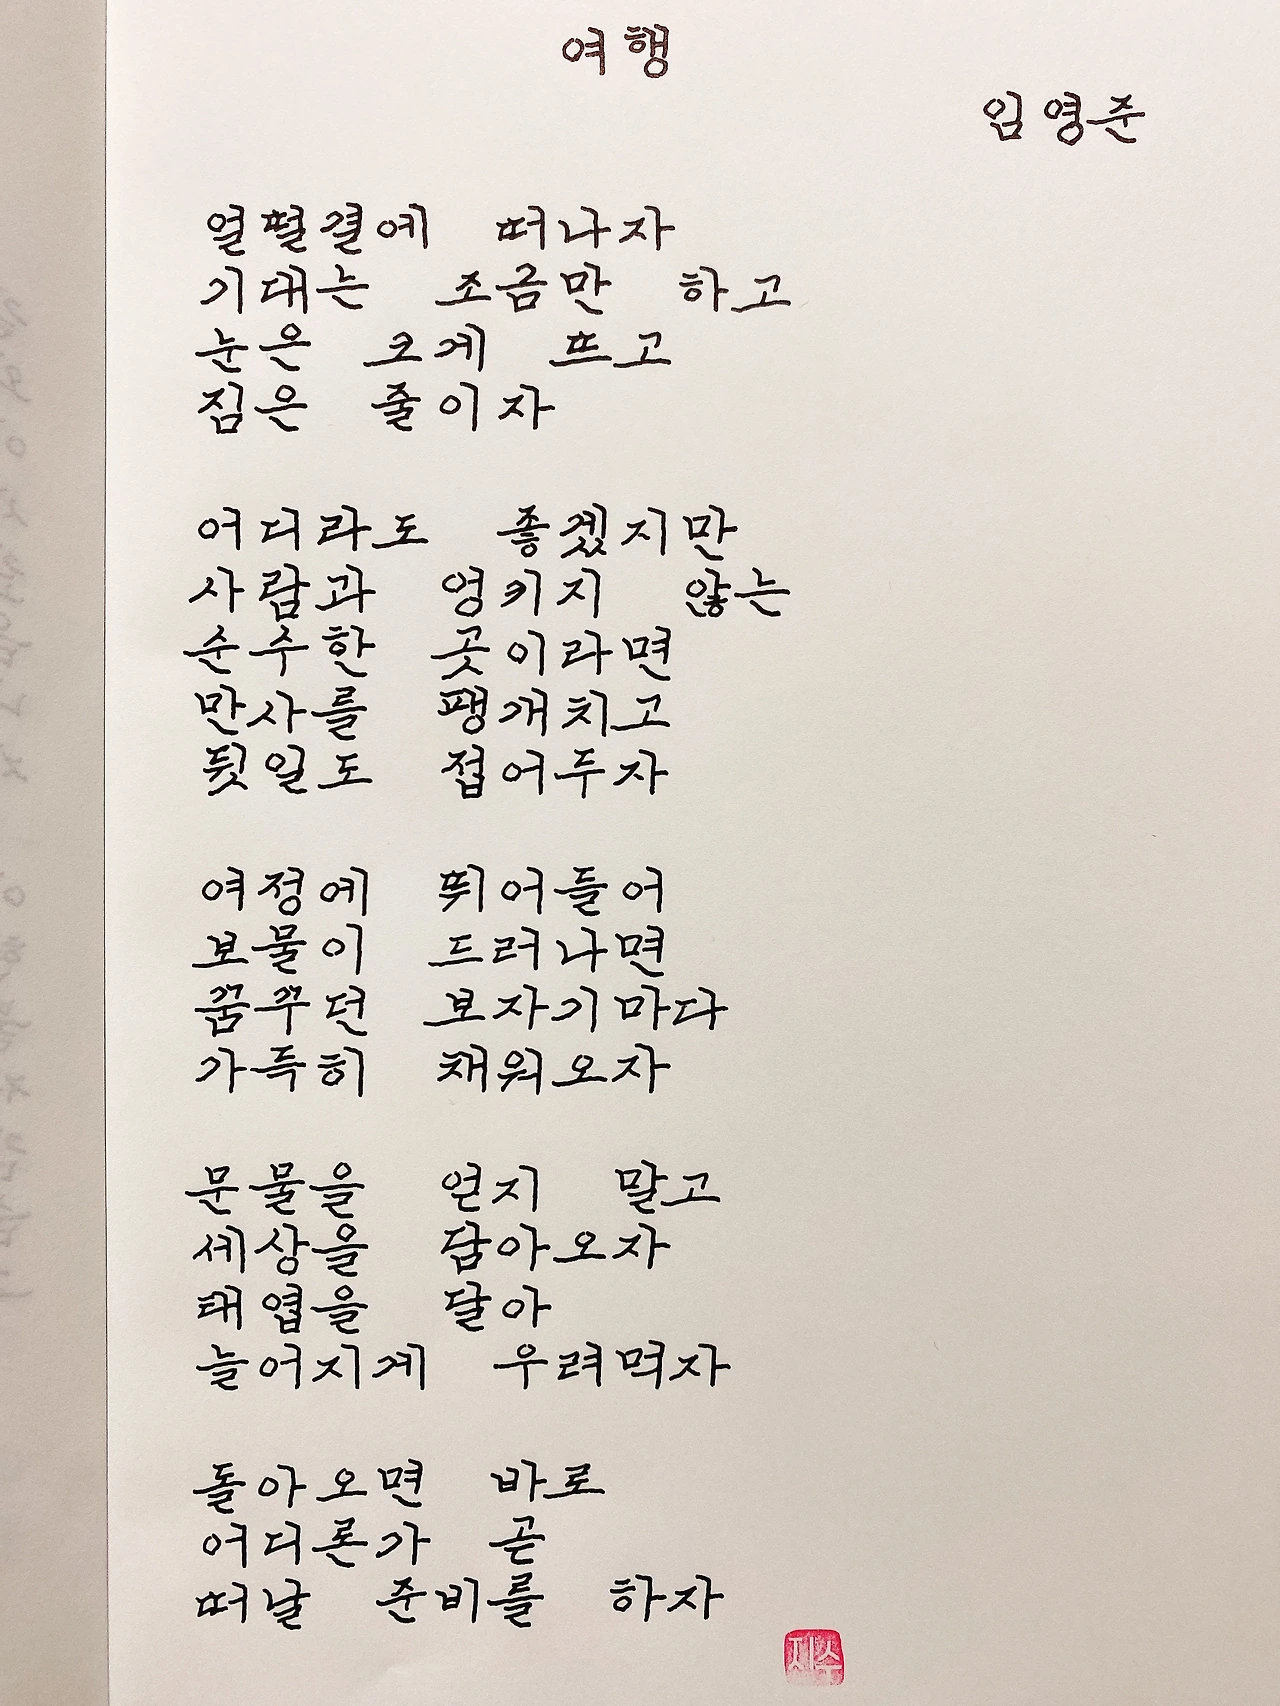 여행
임영준
얼떨결에 떠나자
기대는 조금만 하고
눈은 크게 뜨고
짐은 줄이자
어디라도 좋겠지만
사람과 엉키지 않는
순수한 곳이라면
만사를 팽개치고
뒷일도 접어두자
여정에 뛰어들어
보물이 드러나면
꿈꾸던 보자기마다
가득히 채워오자
문물을 얻지 말고
세상을 담아오자
태엽을 달아
늘어지게 우려먹자
돌아오면 바로
어디론가 곧
떠날 준비를 하자